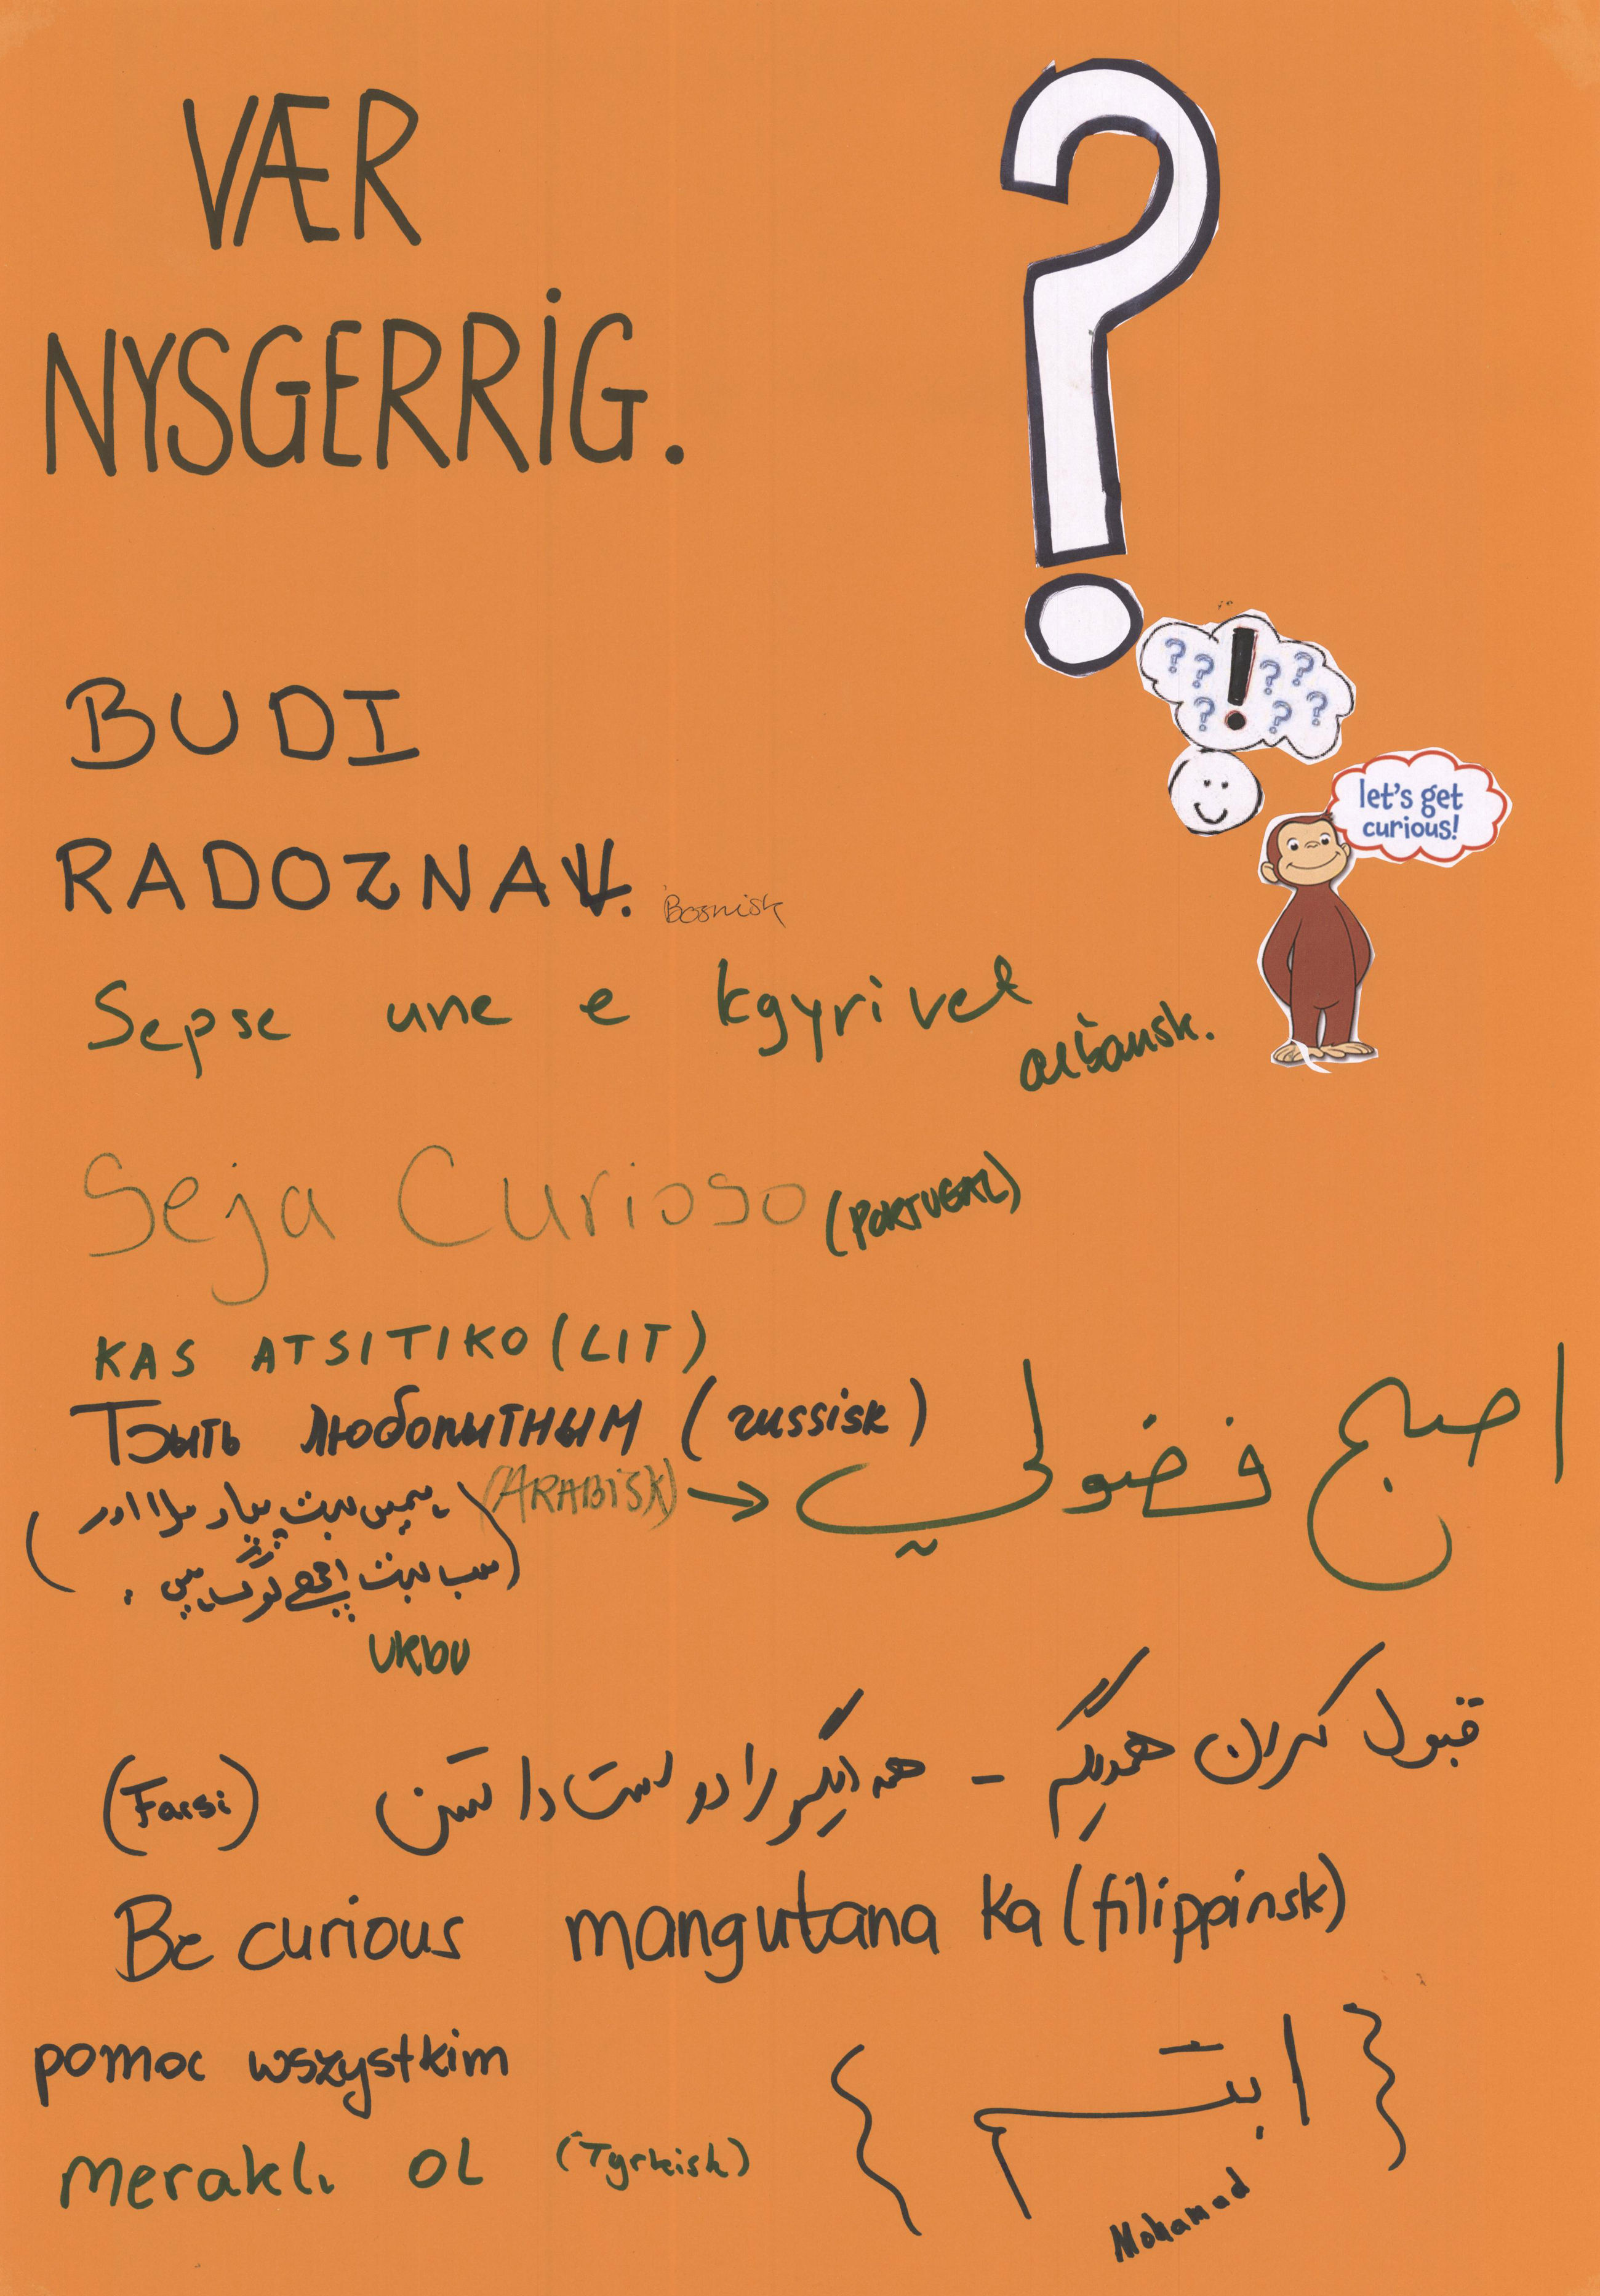 VÆR
NYSGERRIG.
? ? ! ? ? ? ? ?
let's get
curious!
BUDI
RADOZNAV. Bosnisk
Sepse une e kgyrivet
albansk.
Seja Curioso (PORTUGAL)
KAS ATSITIKO (LIT)
Тбыть любопитным (russisk)
(ARABISK) → اصبح فضولي
ہمیں بہت پیار ملا اور
سب بہت اچھے لوگ ہیں
URDU
قبول کردن همدیگر - همدیگر را دوست داشتن (Farsi)
Be curious mangutana ka (filippinsk)
pomoc wszystkim
{ ابتسم }
meraklı OL (Tyrkisk)
Mohamad